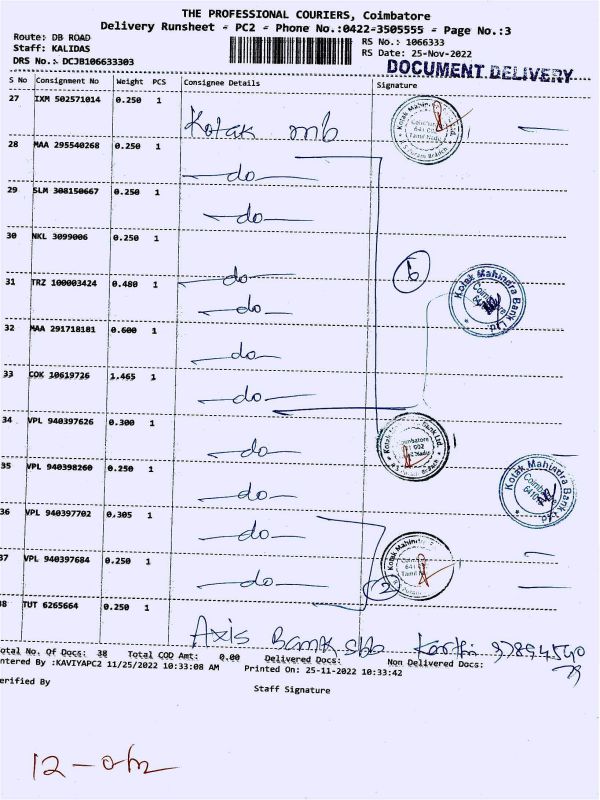 THE PROFESSIONAL COURIERS, Coimbatore
Delivery Runsheet - PC2 - Phone No.:0422-3505555 - Page No.:3
Route: DB ROAD RS No.: 1066333
Staff: KALIDAS RS Date: 25-Nov-2022
DRS No.: DCJB106633303 DOCUMENT DELIVERY
S No Consignment No Weight PCS Consignee Details Signature
27 IXM 502571014 0.250 1
Kotak mb
28 MAA 295540268 0.250 1
do
29 SLM 308150667 0.250 1
do
30 NKL 3099006 0.250 1
do
31 TRZ 100003424 0.480 1
do
32 MAA 291718181 0.600 1
do
33 COK 10619726 1.465 1
do
34 VPL 940397626 0.300 1
do
35 VPL 940398260 0.250 1
do
36 VPL 940397702 0.305 1
do
37 VPL 940397684 0.250 1
do
38 TUT 6265664 0.250 1
Axis Bank
Kotak Mahindra Bank Ltd.
Coimbatore
Total No. Of Docs: 38 Total COD Amt: 0.00 Delivered Docs: Non Delivered Docs:
Entered By :KAVIYAPC2 11/25/2022 10:33:08 AM Printed On: 25-11-2022 10:33:42
Verified By
Staff Signature